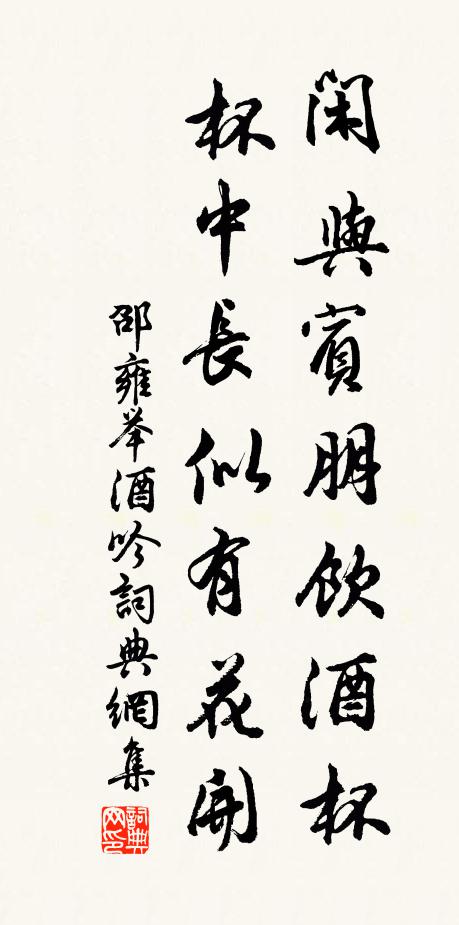 閑與賓朋飲酒杯
杯中長似有花開
邵雍举酒吟詞典網集
詞典网印